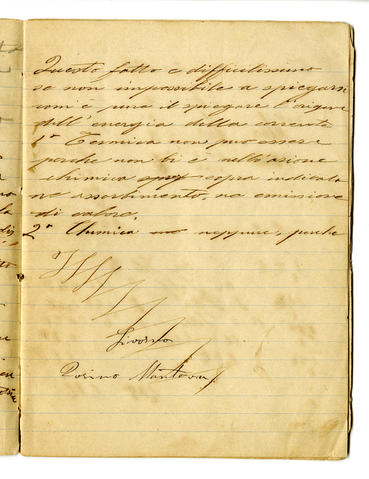 Questo fatto è difficilissimo
se non impossibile a spiegarsi
com'è pure il spiegare l'origine
dell'energia della corrente
1° Termica non può essere
perche non vi è nell'azione
chimica sopra indicata
ne assorbimento, ne emissione
di calore.
2° Chimica neppure, perche
Livorno
Torino Mantova